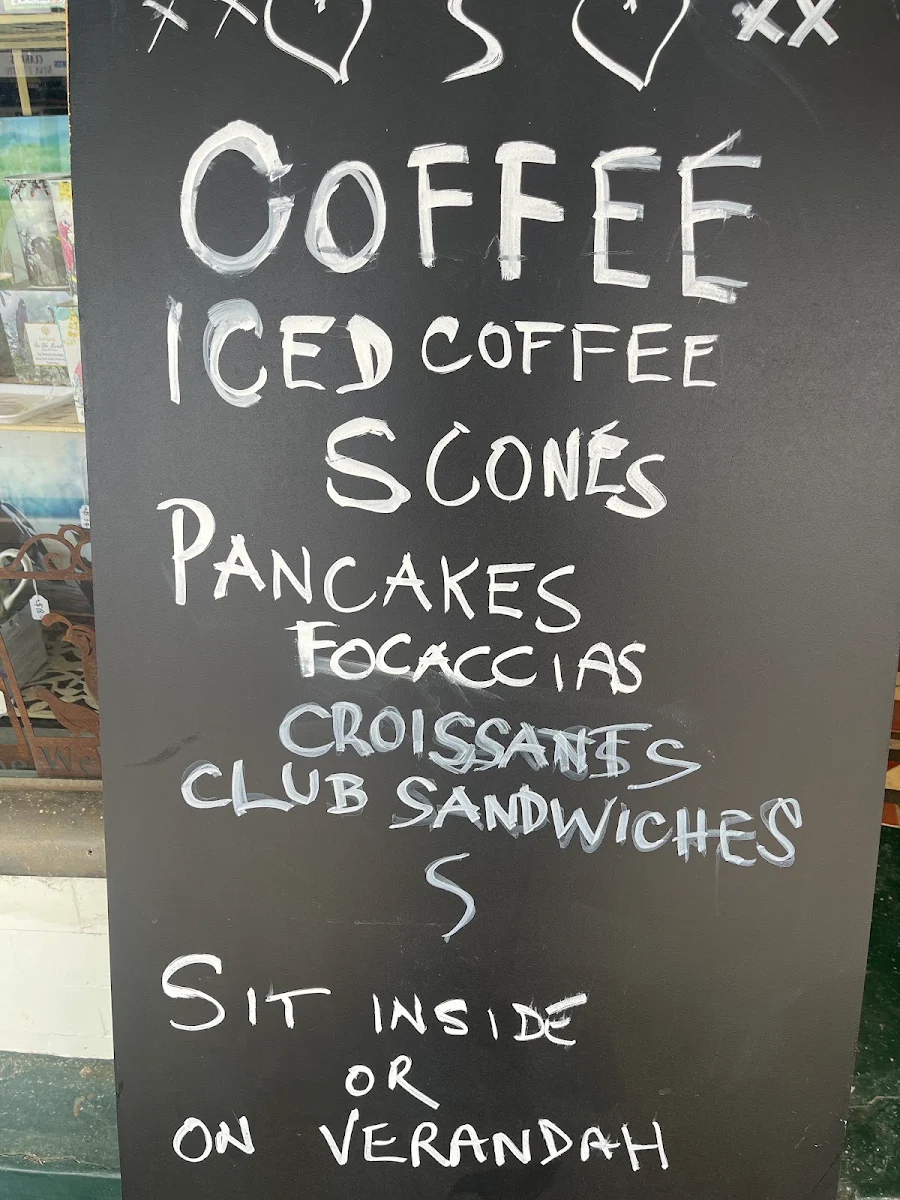 XX S XX
COFFEE
ICED COFFEE
SCONES
PANCAKES
FOCACCIAS
CROISSANTS
CLUB SANDWICHES
S
SIT INSIDE
OR
ON VERANDAH